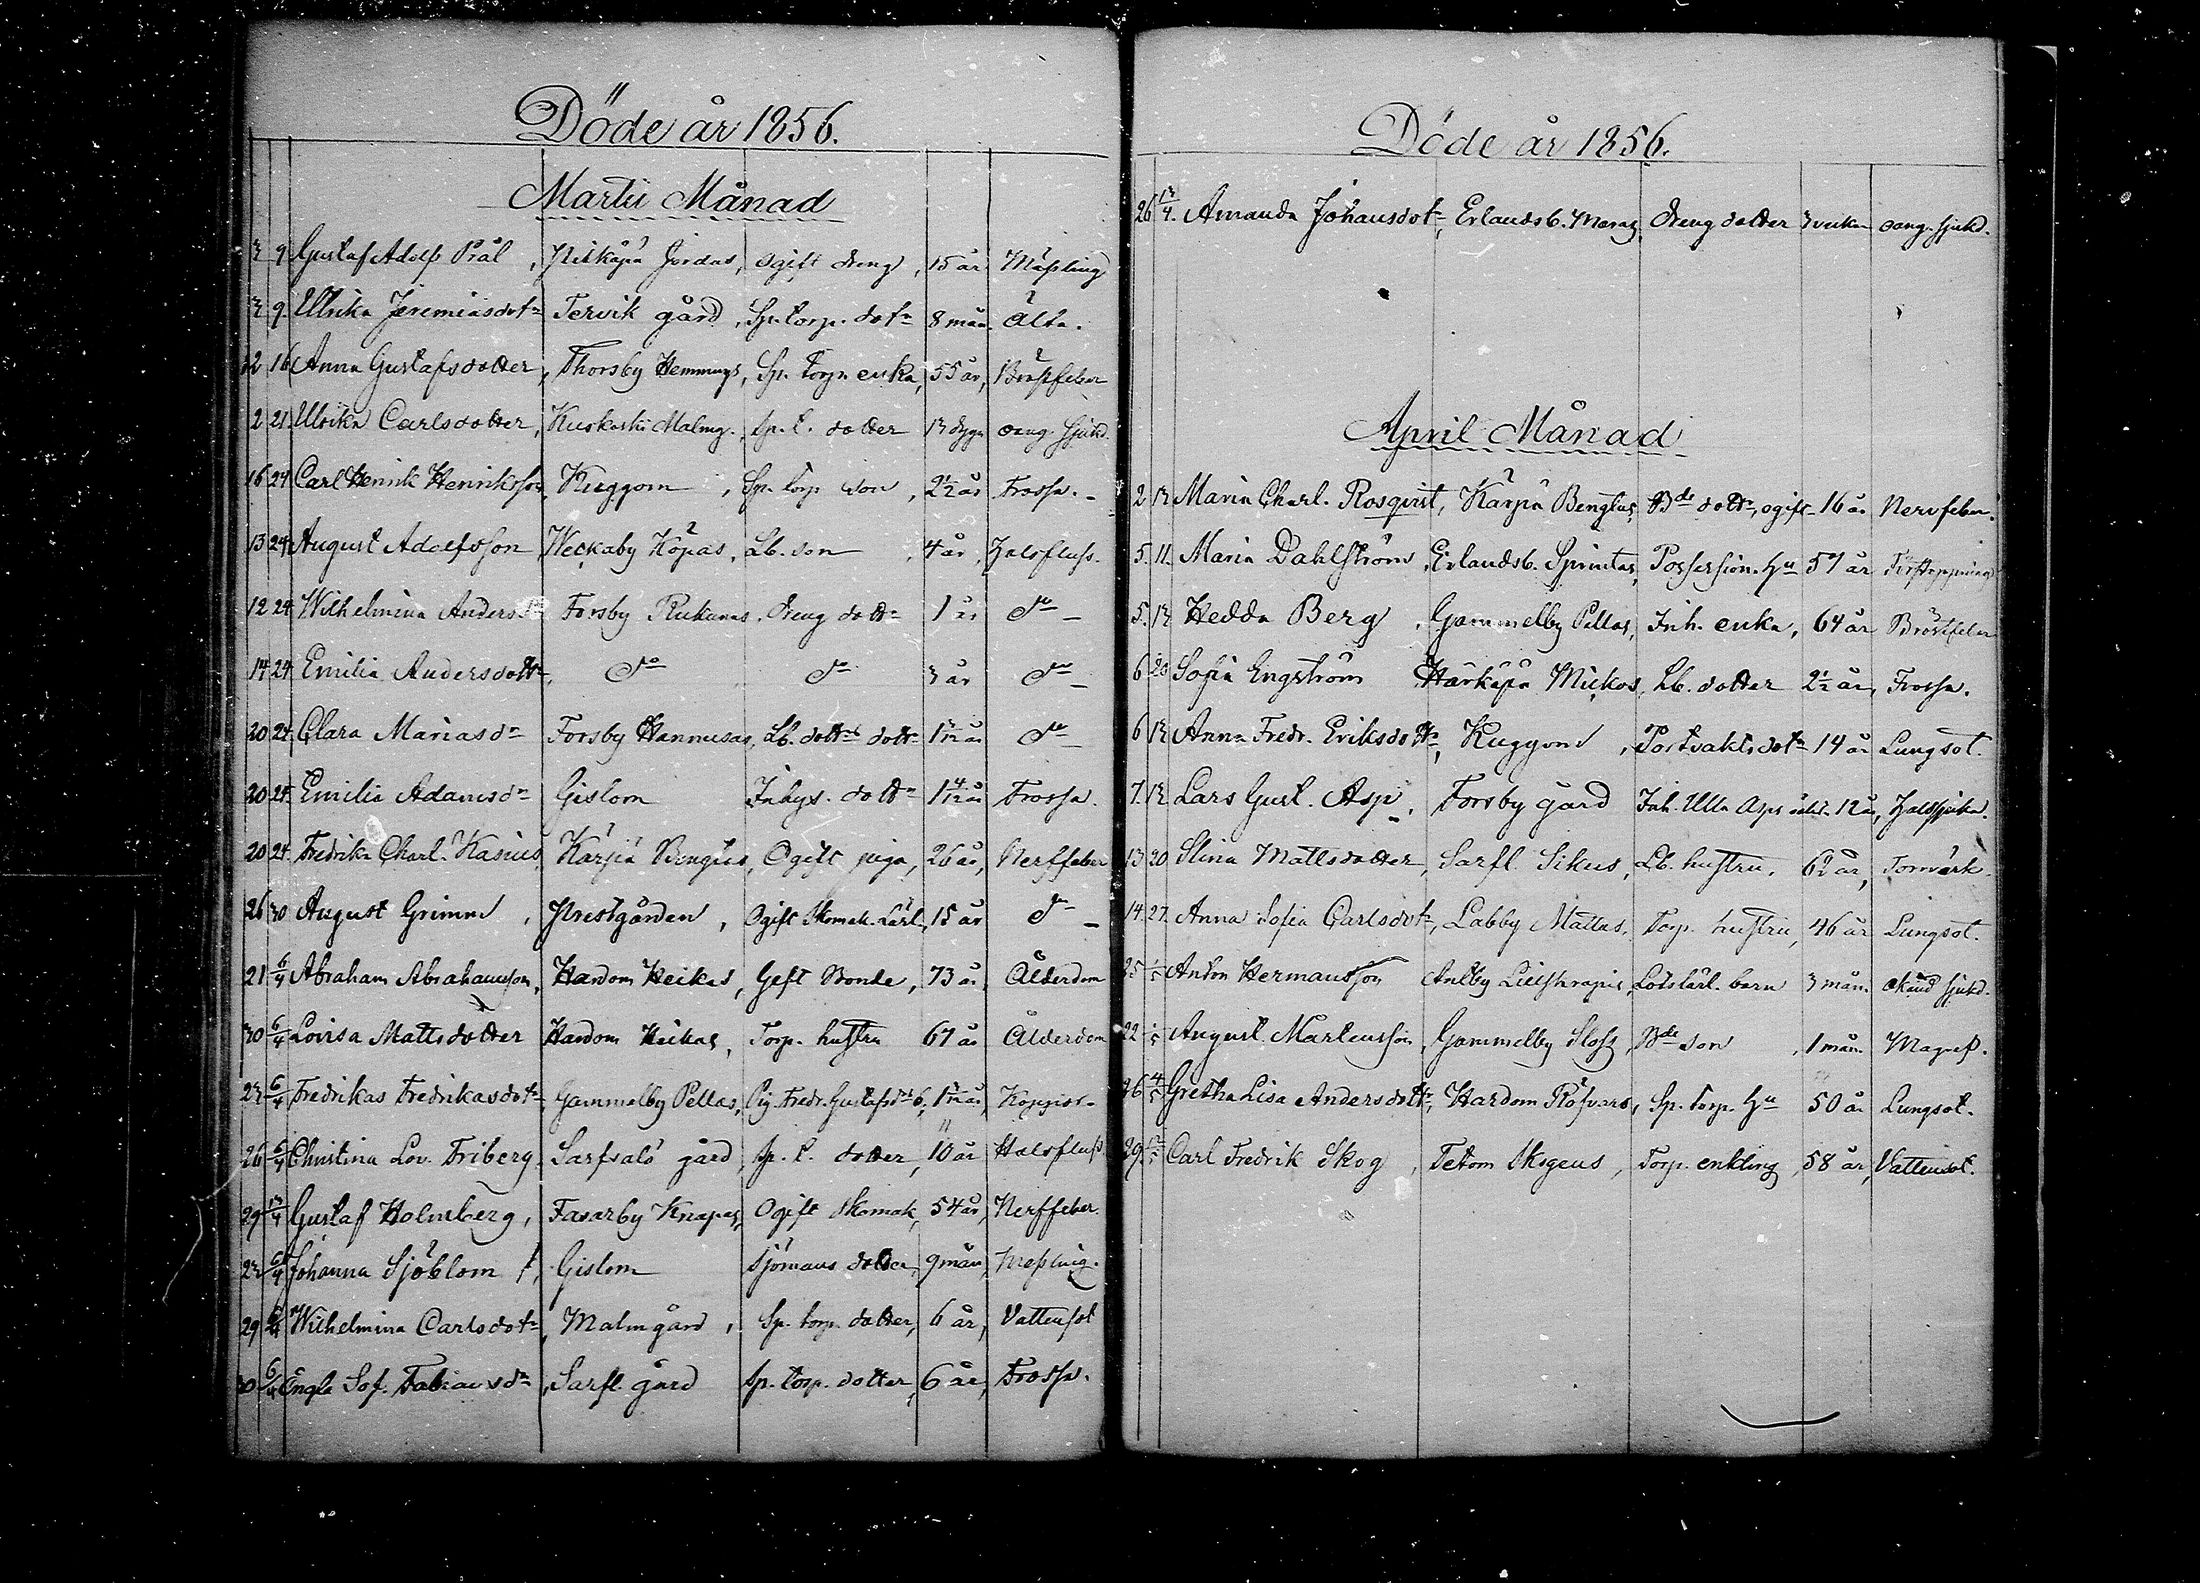 Döde år 1856.
Martii Månad
3 9. Gustaf Adolf Prål, Härkäpä Jordas, ogift dreng, 15 år Mäßling
3 9. Ulrika Jeremiasdotr Tervik gård, Sp. torp. dotr 8 mån. Älta.
12 16 Anna Gustafsdotter, Thorsby Hemmings, Sp. torp. enka, 55 år, Bröstfeber
2 21. Ulrika Carlsdotter, Kuskoski Malmg., sp. t. dotter 13 dygn oang. sjukd.
16 24 Carl Henrik Henriksson, Kuggom, Sp. torp son, 2½ år Frossa.
13 24. August Adolfsson, Weckaby Köpas, Lb. son, 4 år, Halsfluss.
12 24. Wilhelmina Andersdr Forsby Rukanas, dreng dottr 1 år do
14 24. Emilia Andersdottr, do do 3 år do
20 24. Clara Mariasdr Forsby Hannusas, Lb. dottrs dotr 1 3/12 år do
20 24. Emilia Adamsdr Gislom Inhys. dottr 1 4/12 år Frossa.
20 24. Fredrika Charl. Kasius, Kärpä Bengtas, Ogift piga, 26 år, Nerffeber
26 30 August Grimm, Prestgården, Ogift Skomak. Lärl. 15 år do
21 6/4 Abraham Abrahamsson, Hardom Heikas, Gift Bonde, 73 år, Ålderdom
30 6/4 Lovisa Mattsdotter Hardom Heikas, Torp. hustru 67 år Ålderdom
23 6/4 Fredrikas Fredrikasdotr Gammelby Pellas, Pig. Fredr. Gustafsdrs b, 1 3/12 år, Koppor.
26 6/4 Christina Lov. Friberg, Sarfsalö gård, sp. t. dotter, 10 år Halsfluss
29 13/4 Gustaf Holmberg, Fasarby Knapas, Ogift Skomak, 54 år, Nerffeber
23 6/4 Johanna Sjöblom, Gislom Sjömans dotter, 9 mån, Meßling.
29 Wilhelmina Carlsdotr, Malmgård, Sp. torp. dotter, 6 år, Vattensot
30 6/4 Engla Sof. Fabiansdr, Sarfl. gård sp. torp. dotter, 6 år, Frossa.
Döde år 1856.
26 13/4. Amanda Johansdotr, Erlandsb. Moras, dreng dotter 3 veckor oang. sjukd.
April Månad
2 13 Maria Charl. Rosqvist, Kärpä Bengtas, Bde dottr, ogift 16 år Nervfeber.
5. 11. Maria Dahlström, Erlandsb. Sprintas, Possession. hu 57 år Förstoppning
5. 13 Hedda Berg, Gammelby Pellas, Inh. enka, 64 år Bröstfeber
6 20 Sofia Engström Härkäpä Mickos, Lb. dotter 2½ år, Frossa.
6 13 Anna Fredr. Eriksdottr, Kuggom, Portvakts dotr 14 år Lungsot.
7. 13 Lars Gust. Asp, Forsby gård Inh. Ulla Asps 12 år, Halssjuka.
13 20 Stina Mattsdotter, Sarfl. Sikus, Lb. hustru, 62 år, Tornvärk.
14. 27. Anna Sofia Carlsdotr, Labby Mattas, Torp. hustru, 46 år Lungsot.
25 Anton Hermansson Antby Lillkrapis, Lotslärl. barn 3 mån. okänd sjukd.
22 August Martensson, Gammelby Sloss, Bde son, 1 mån. Magref.
26 4/5 Gretha Lisa Andersdottr, Hardom Röfvars, Sp. torp. hu 50 år Lungsot.
29. Carl Fredrik Skog, Tetom Skogens, Torp. enkling 58 år, Vattensot.